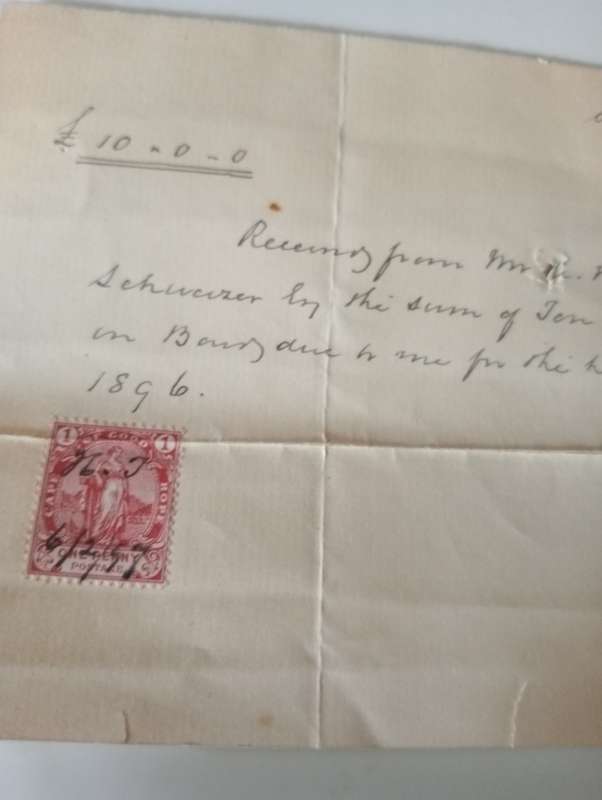 £ 10 - 0 - 0
Received from Mr
Schweizer by the sum of Ten
in Bond due to me for the
1896.
1 CAPE OF GOOD HOPE 1
H. J
6/2/97
ONE PENNY
POSTAGE